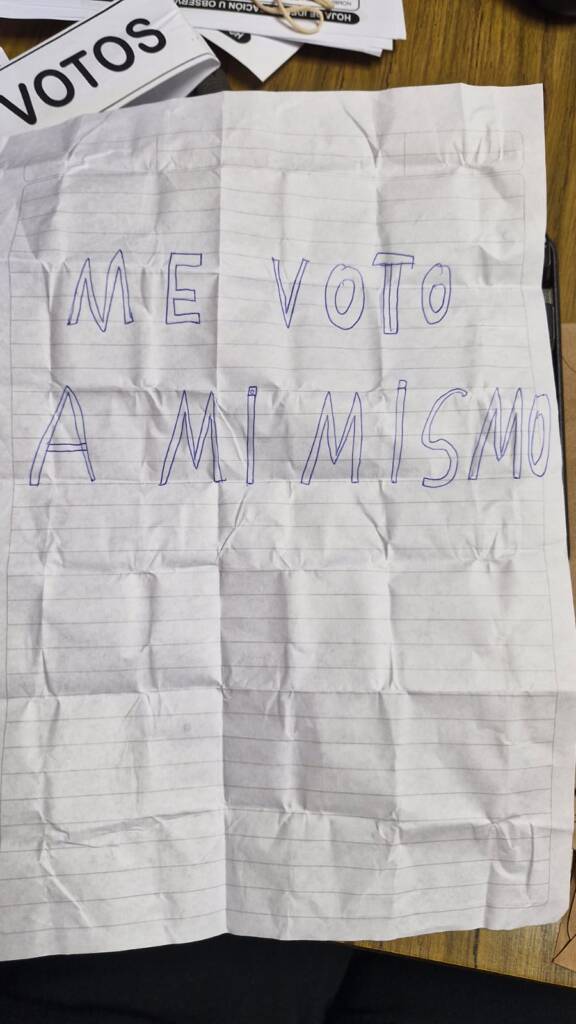 VOTOS
HOJA DE IDE
ACIÓN U OBSERV
ME VOTO
A MI MISMO